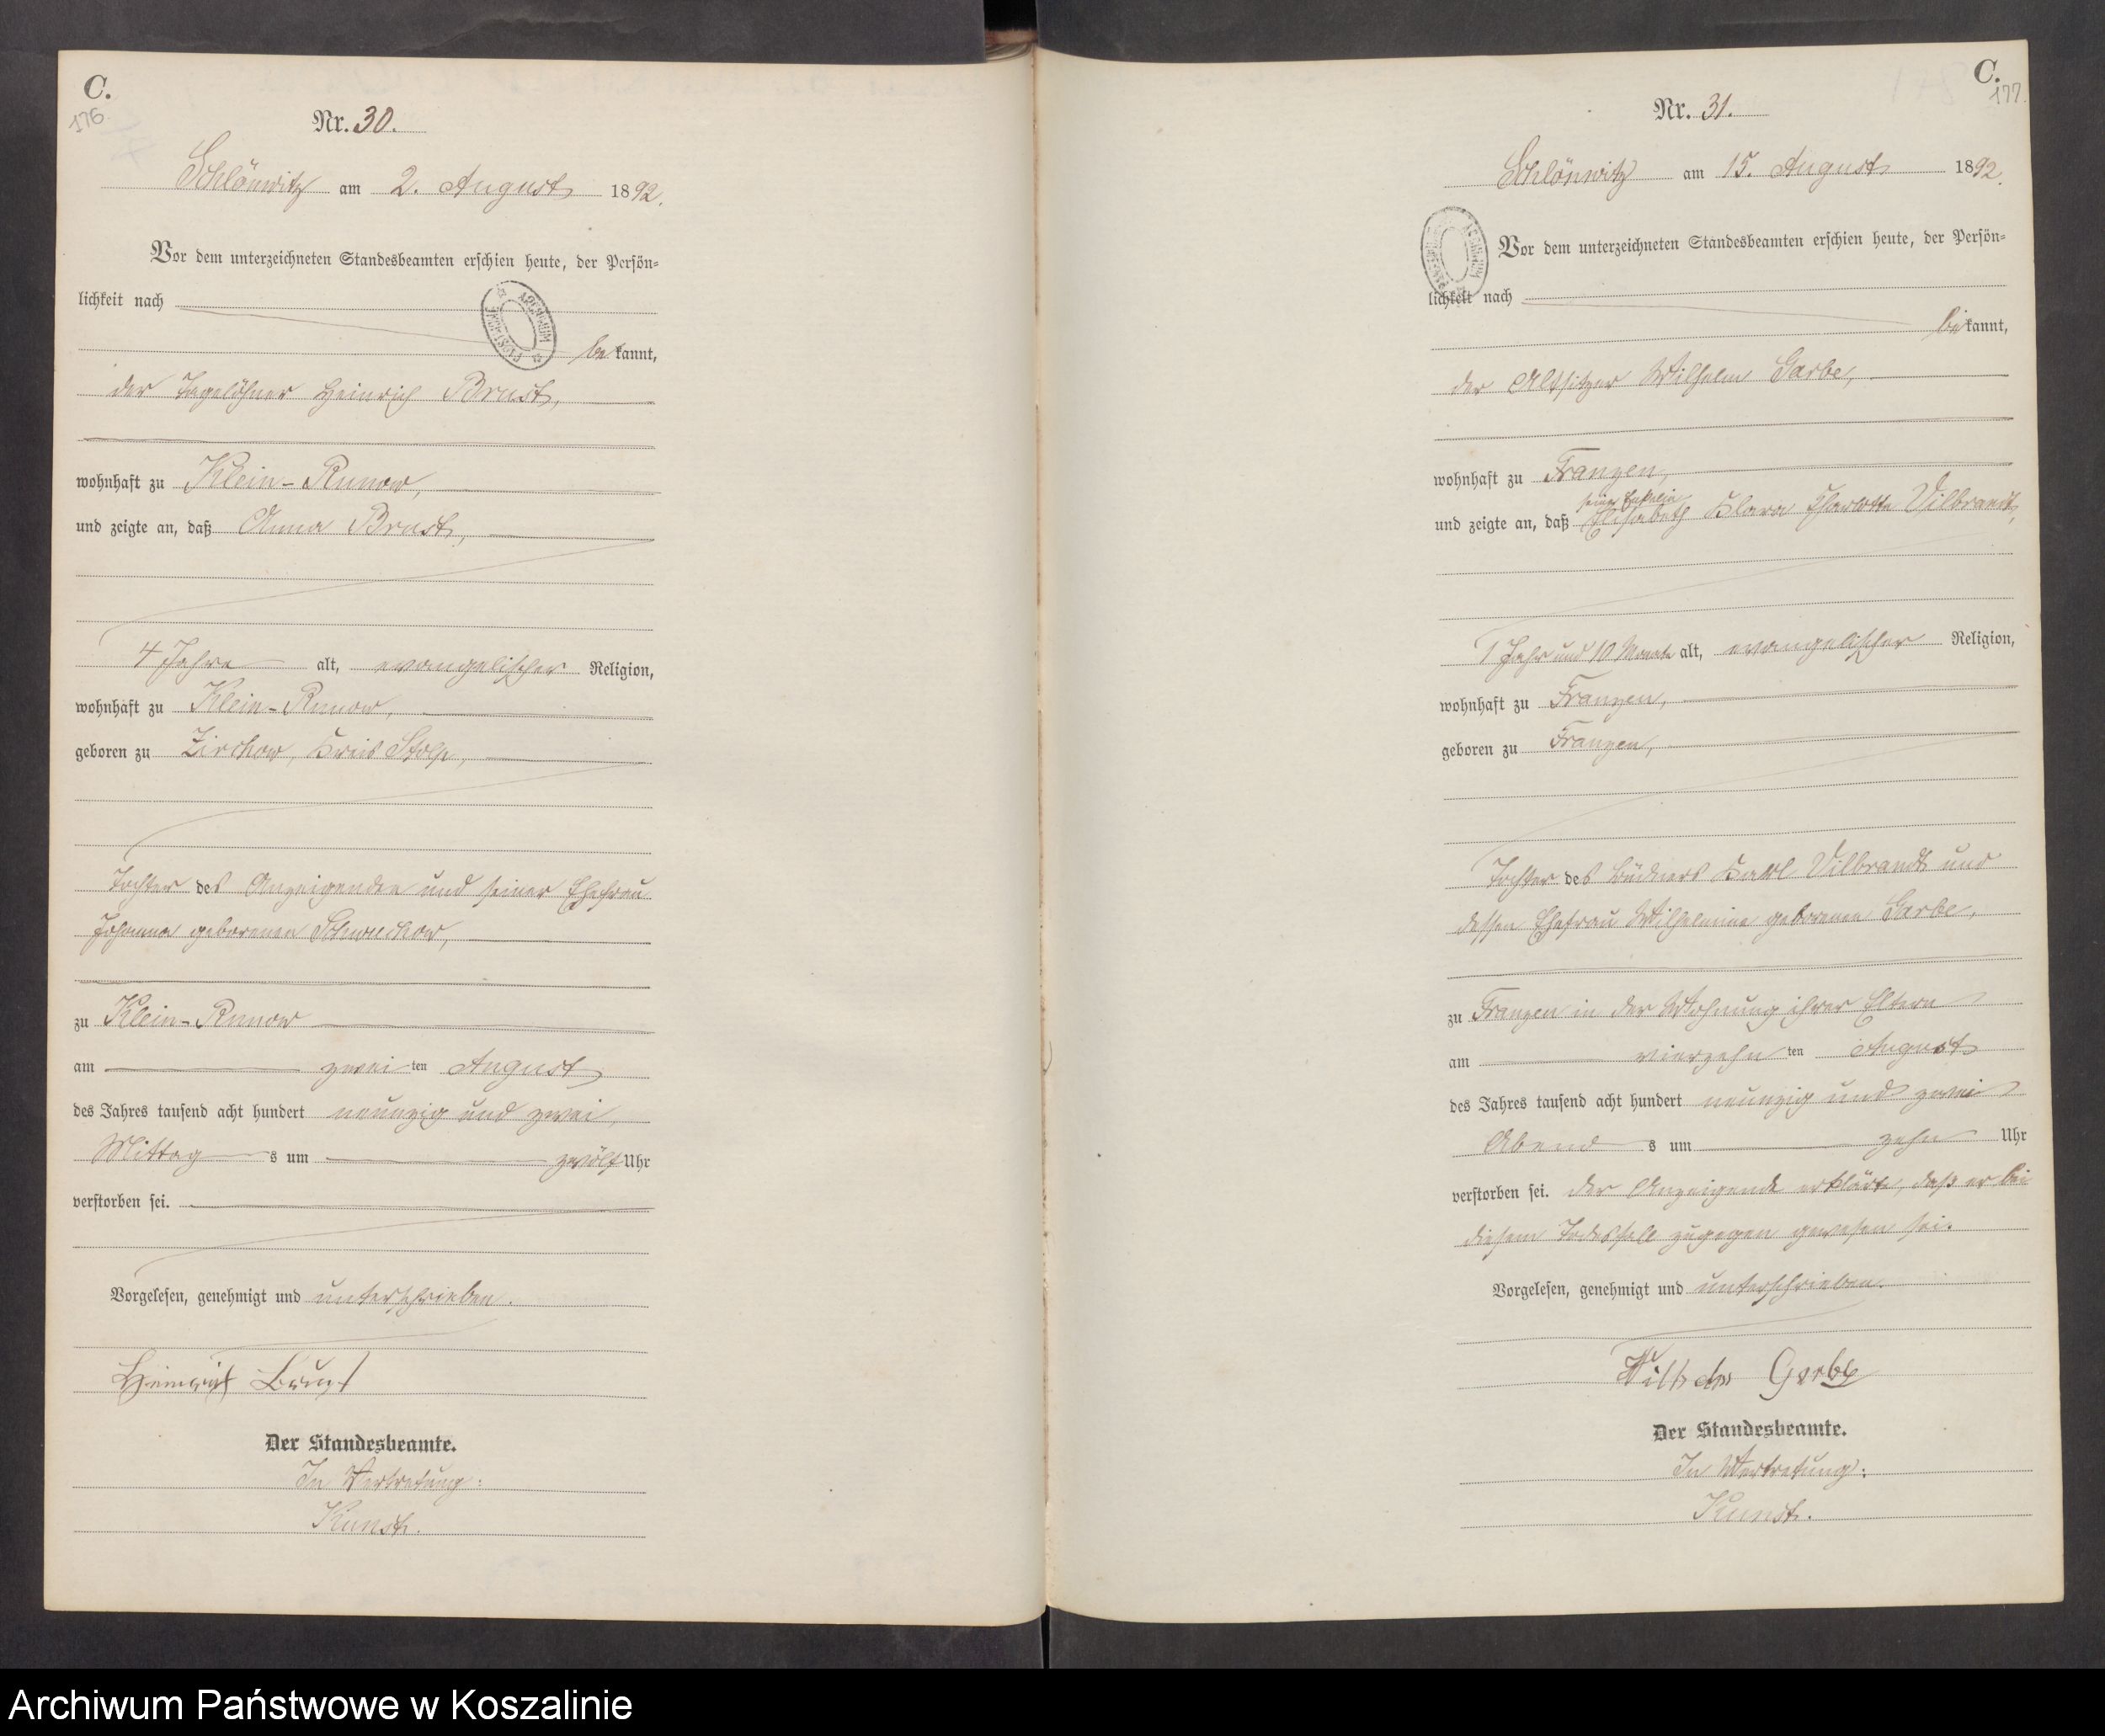 C.
176
Nr. 30.
Schlönwitz am 2. August 1892.
Vor dem unterzeichneten Standesbeamten erschien heute, der Persön-
lichkeit nach
bekannt,
der Tagelöhner Heinrich Brust,
wohnhaft zu Klein-Runow,
und zeigte an, daß Anna Brust,
4 Jahre alt, evangelischer Religion,
wohnhaft zu Klein-Runow,
geboren zu Zirchow, Kreis Stolp,
Tochter des Anzeigenden und seiner Ehefrau
Johanna geborenen
zu Klein-Runow
am zweiten August
des Jahres tausend acht hundert neunzig und zwei,
Mittags um zwölf Uhr
verstorben sei.
Vorgelesen, genehmigt und unterschrieben.
Heinrich Brust
Der Standesbeamte.
In Vertretung:
Kunst.
C.
177.
Nr. 31.
Schlönwitz am 15. August 1892.
ARCHIWUM
Vor dem unterzeichneten Standesbeamten erschien heute, der Persön-
lichkeit nach
bekannt,
der Altsitzer Wilhelm Garbe,
wohnhaft zu Franzen,
seine Enkelin
und zeigte an, daß Elisabeth Klara Charlotte Vilbrandt,
1 Jahr und 10 Monate alt, evangelischer Religion,
wohnhaft zu Franzen,
geboren zu Franzen,
Tochter des Büdners Karl Vilbrandt und
dessen Ehefrau Wilhelmine geborenen Garbe,
zu Franzen in der Wohnung ihrer Eltern
am vierzehnten August
des Jahres tausend acht hundert neunzig und zwei
Abends um zehn Uhr
verstorben sei. Der Anzeigende erklärte, daß er bei
diesem Todesfall zugegen gewesen sei.
Vorgelesen, genehmigt und unterschrieben.
Wilhelm Garbe
Der Standesbeamte.
In Vertretung:
Kunst.
Archiwum Państwowe w Koszalinie